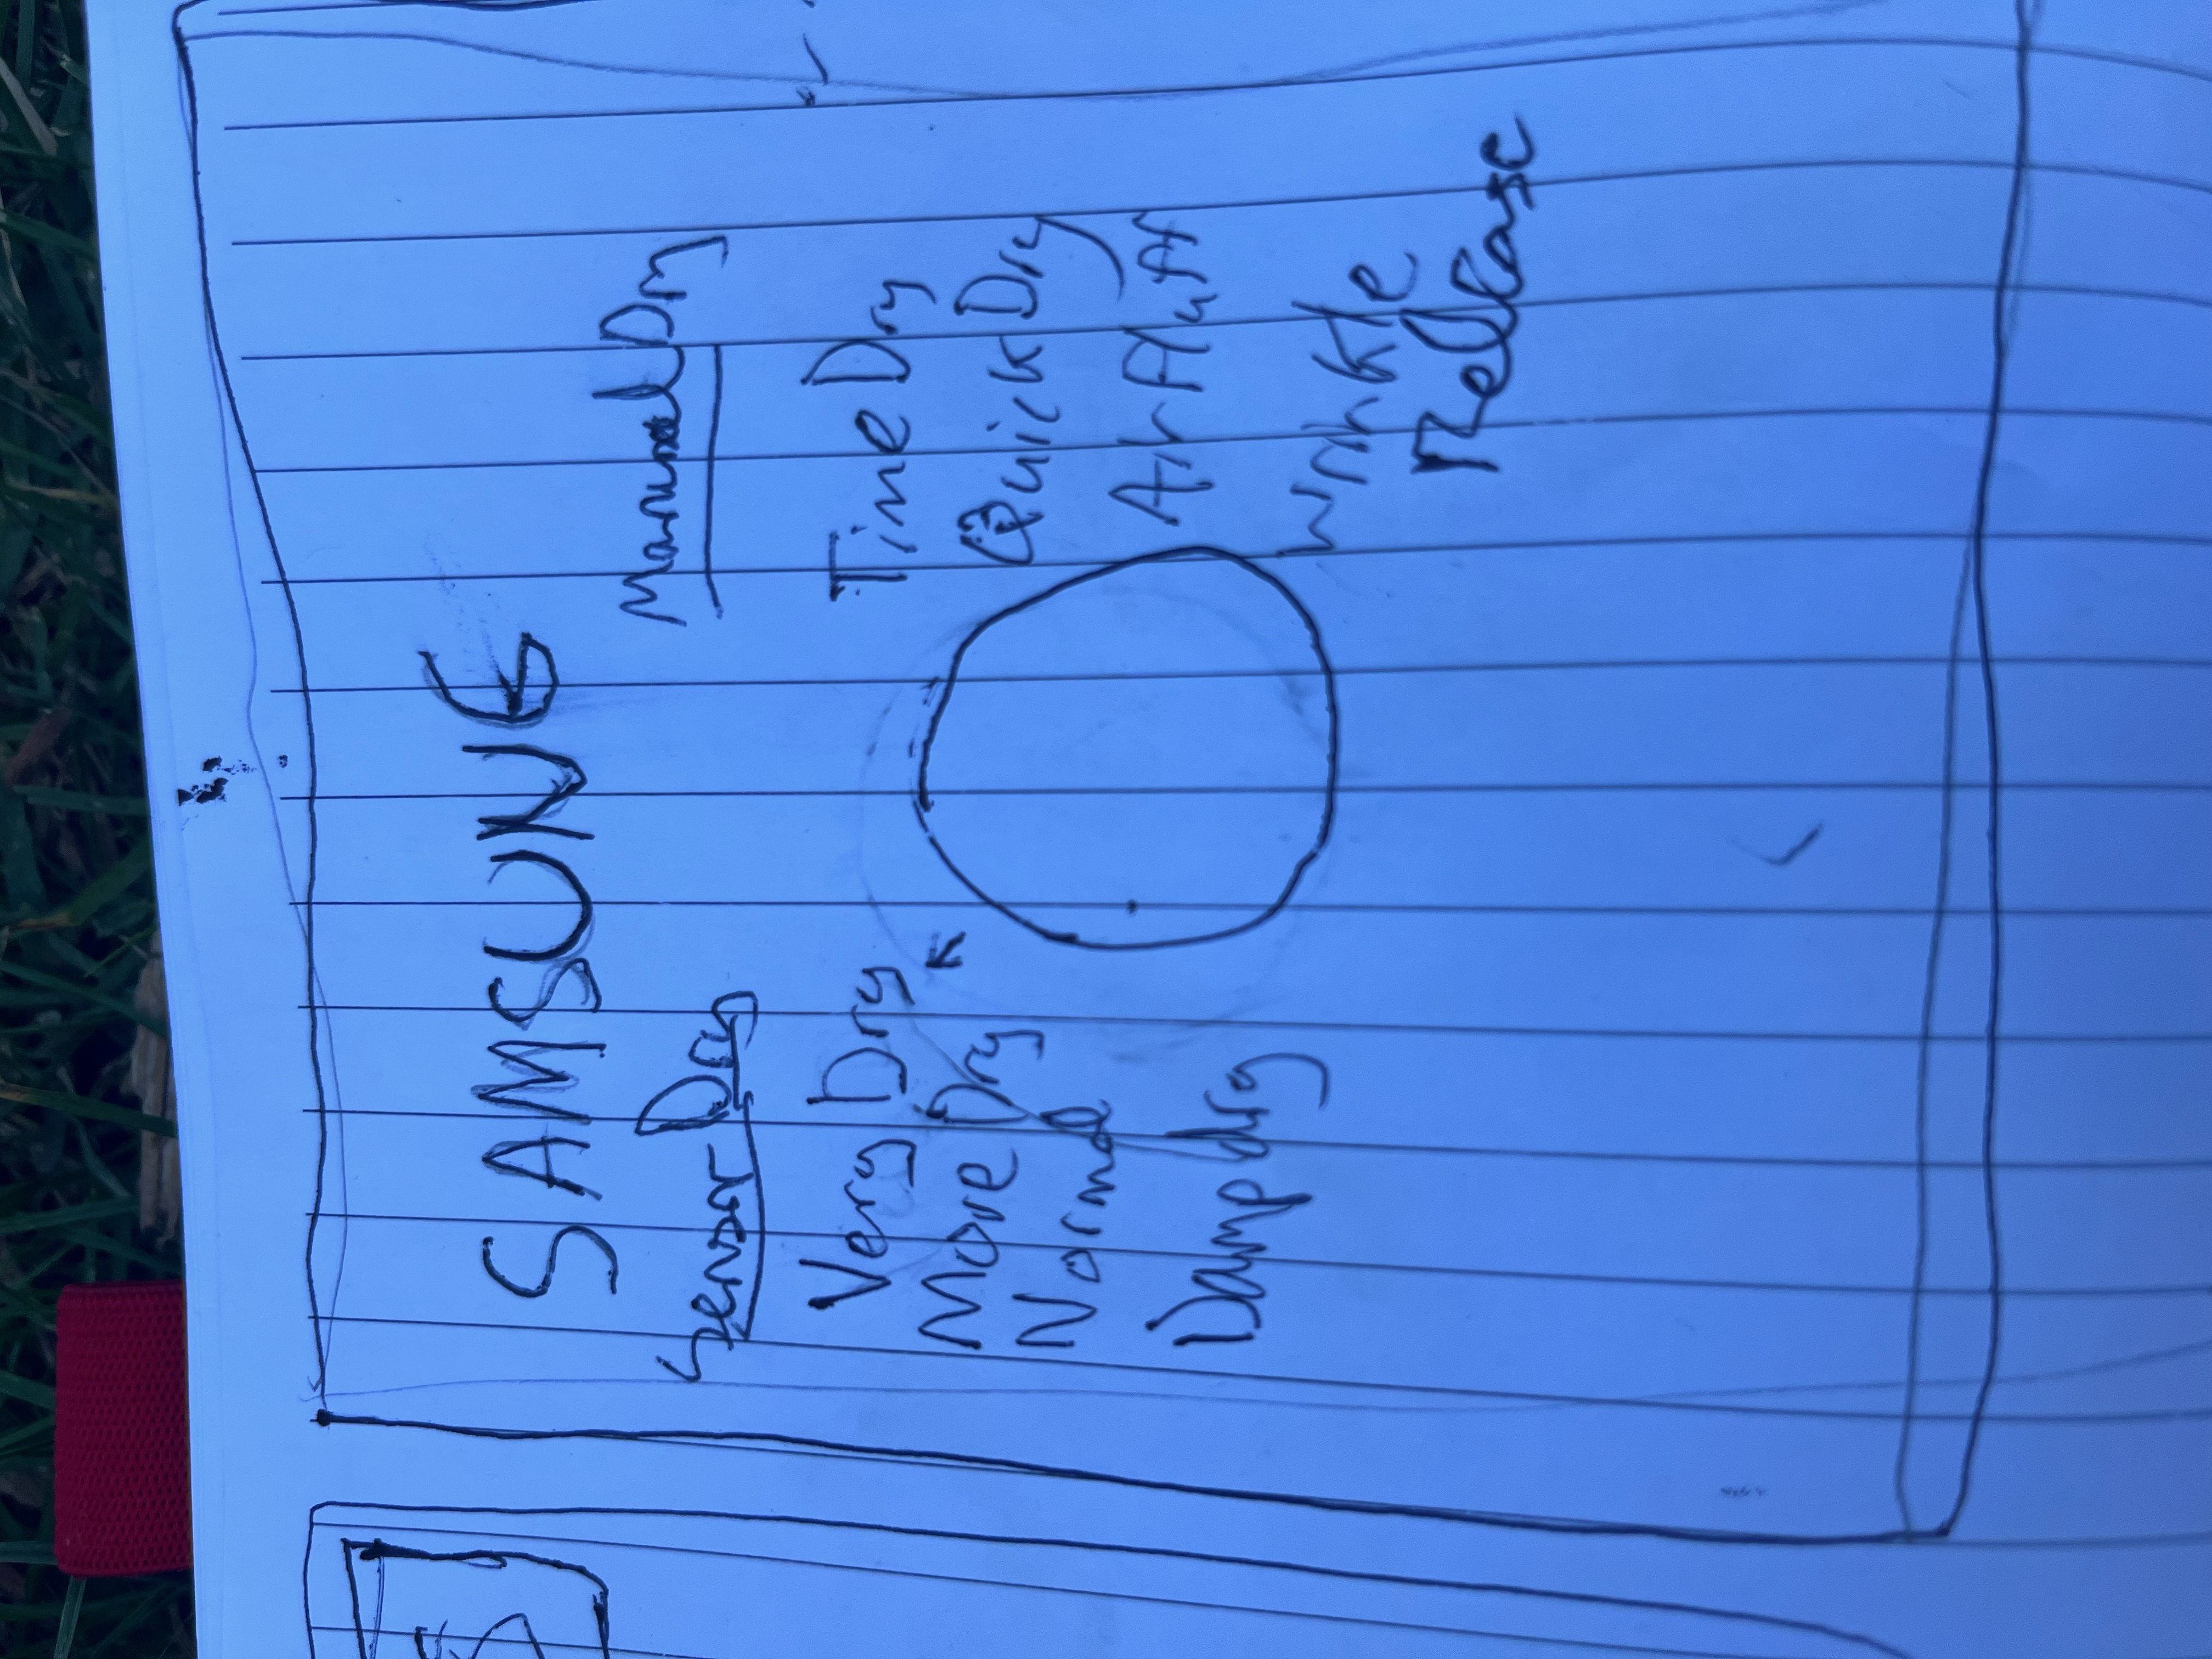 SAMSUNG
Sensor Dry
Very Dry
More Dry
Normal
Damp dry
Manual Dry
Time Dry
Quick Dry
Air Fluff
Wrinkle
Release